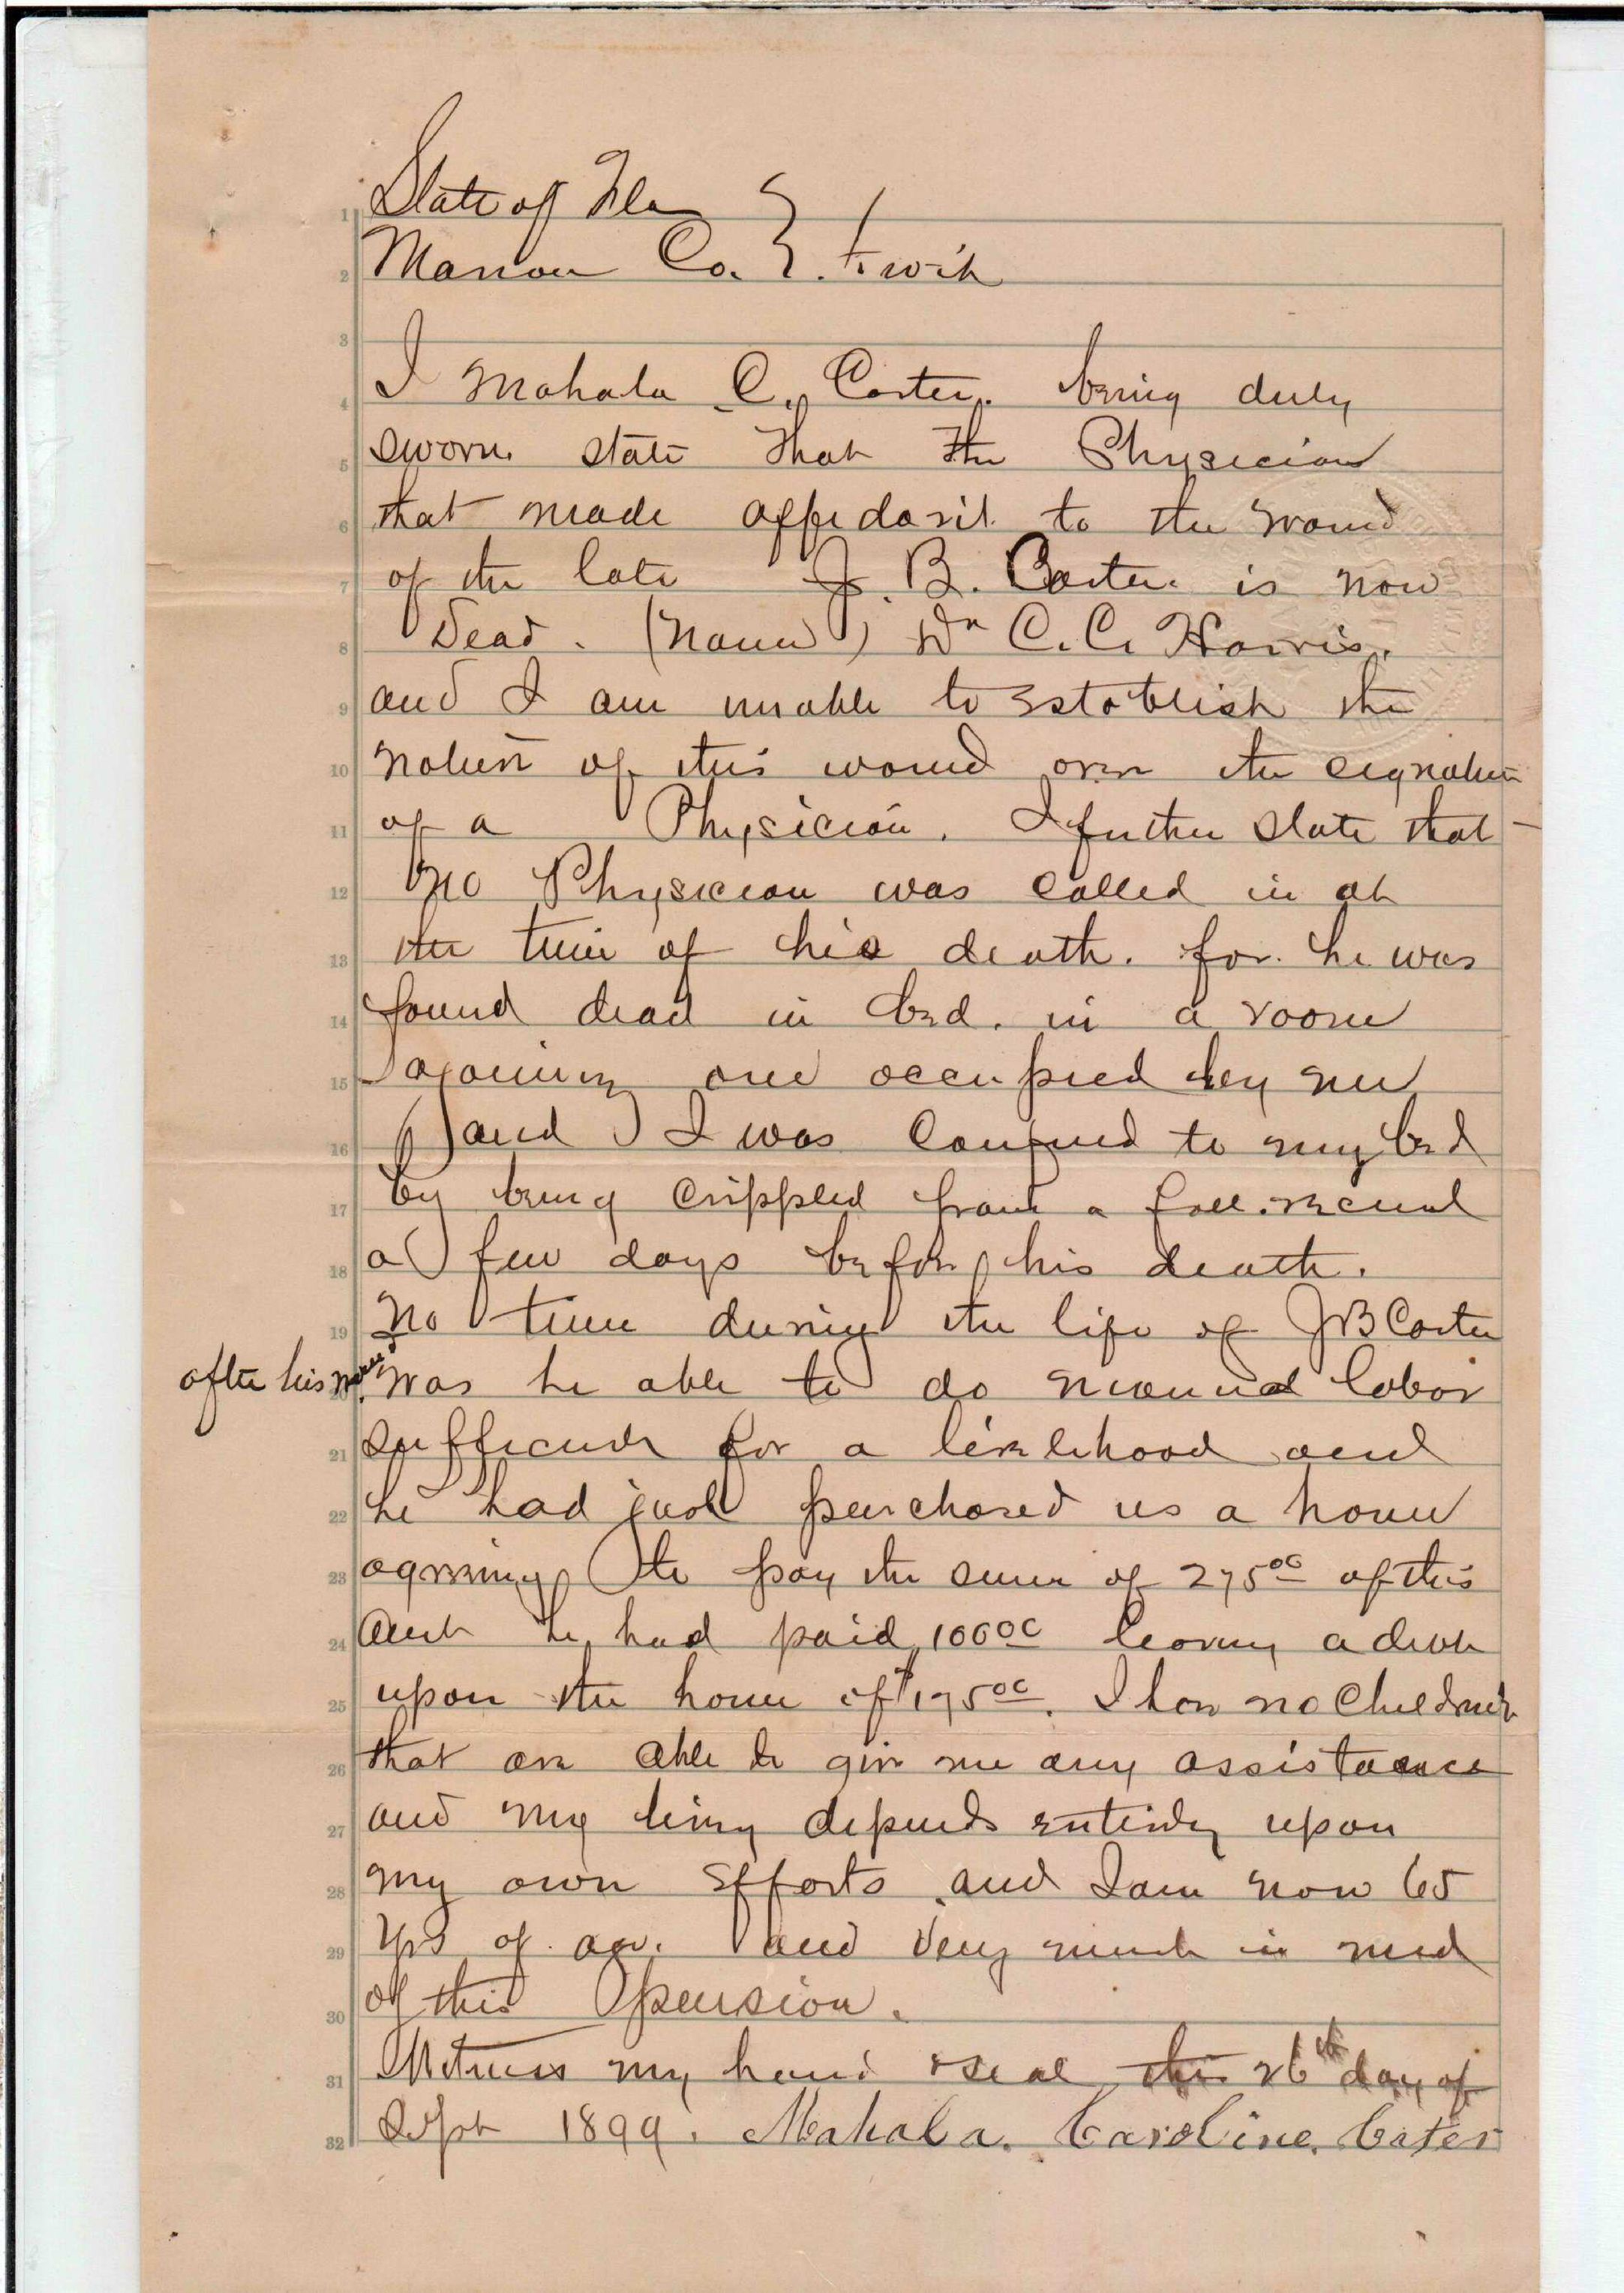 State of Fla
Marion Co. To wit
I Mahala C. Carter. being duly
sworn state that the Physician
that made affidavit to the wound
of the late J. B. Carter. is now
Dead. (Named) Dr C. C. Harris.
and I am unable to establish the
nature of this wound over the signature
of a Physician. I further state that
no Physician was called in at
the time of his death. for he was
found dead in bed. in a room
ajoining one occupied by me
and I was confined to my bed
by being crippled from a fall. received
a few days before his death.
No time during the life of JB Carter
after his wound was he able to do manual labor
sufficient for a livelihood and
he had just purchased us a home
agreeing to pay the sum of 275 00 of this
amt he had paid 100 00 leaving a debt
upon the home of $175 00. I have no Children
that are able to give me any assistance
and my living depends entirely upon
my own efforts and I am now 65
yrs of age. and very much in need
of this pension.
Witness my hand & seal this 26th day of
Sept 1899. Mahala. Caroline. Carter
1
2
3
4
5
6
7
8
9
10
11
12
13
14
15
16
17
18
19
20
21
22
23
24
25
26
27
28
29
30
31
32